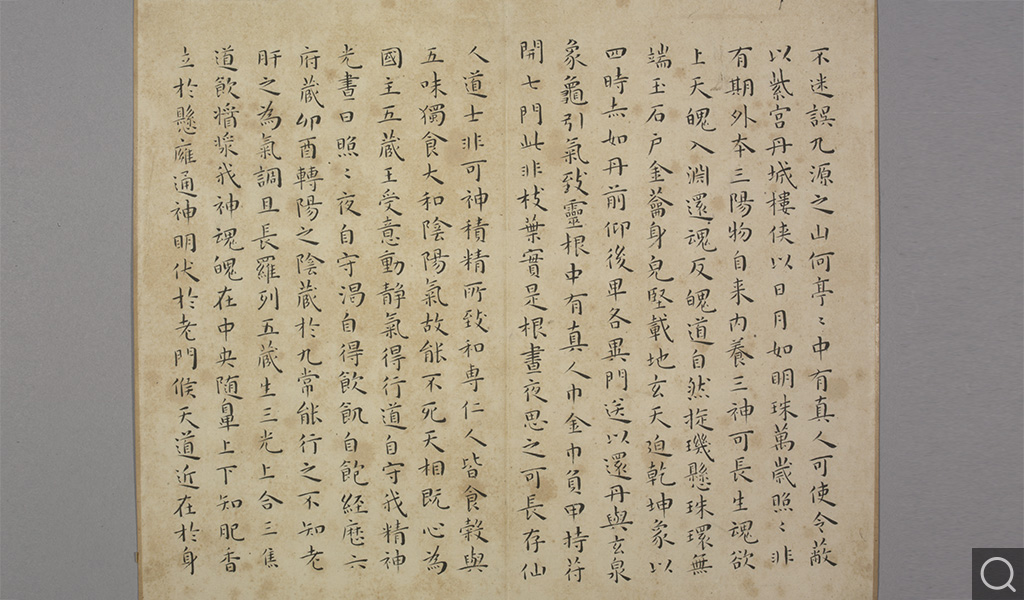 不迷誤九源之山何亭〻中有真人可使令蔽
以紫宮丹城樓俠以日月如明珠萬歲照〻非
有期外本三陽物自来内養三神可長生魂欲
上天魄入淵還魂反魄道自然㨁璣懸珠環無
端玉石戶金籥身皃堅載地玄天迫乾坤象以
四時赤如丹前仰後卑各異門送以還丹與玄泉
象龜引氣致靈根中有真人巾金巾負甲持苻
開七門此非枝葉實是根晝夜思之可長存仙
人道士非可神積精所致和專仁人皆食穀與
五味獨食大和陰陽氣故能不死天相既心為
國主五蔵王受意動静氣得行道自守我精神
光晝日照〻夜自守渴自得飲飢自飽經歷六
府蔵卯酉轉陽之陰蔵於九常能行之不知老
肝之為氣調且長羅列五蔵生三光上合三焦
道飲醬漿我神魂魄在中央随鼻上下知肥香
立於懸雍通神明伏於老門候天道近在於身